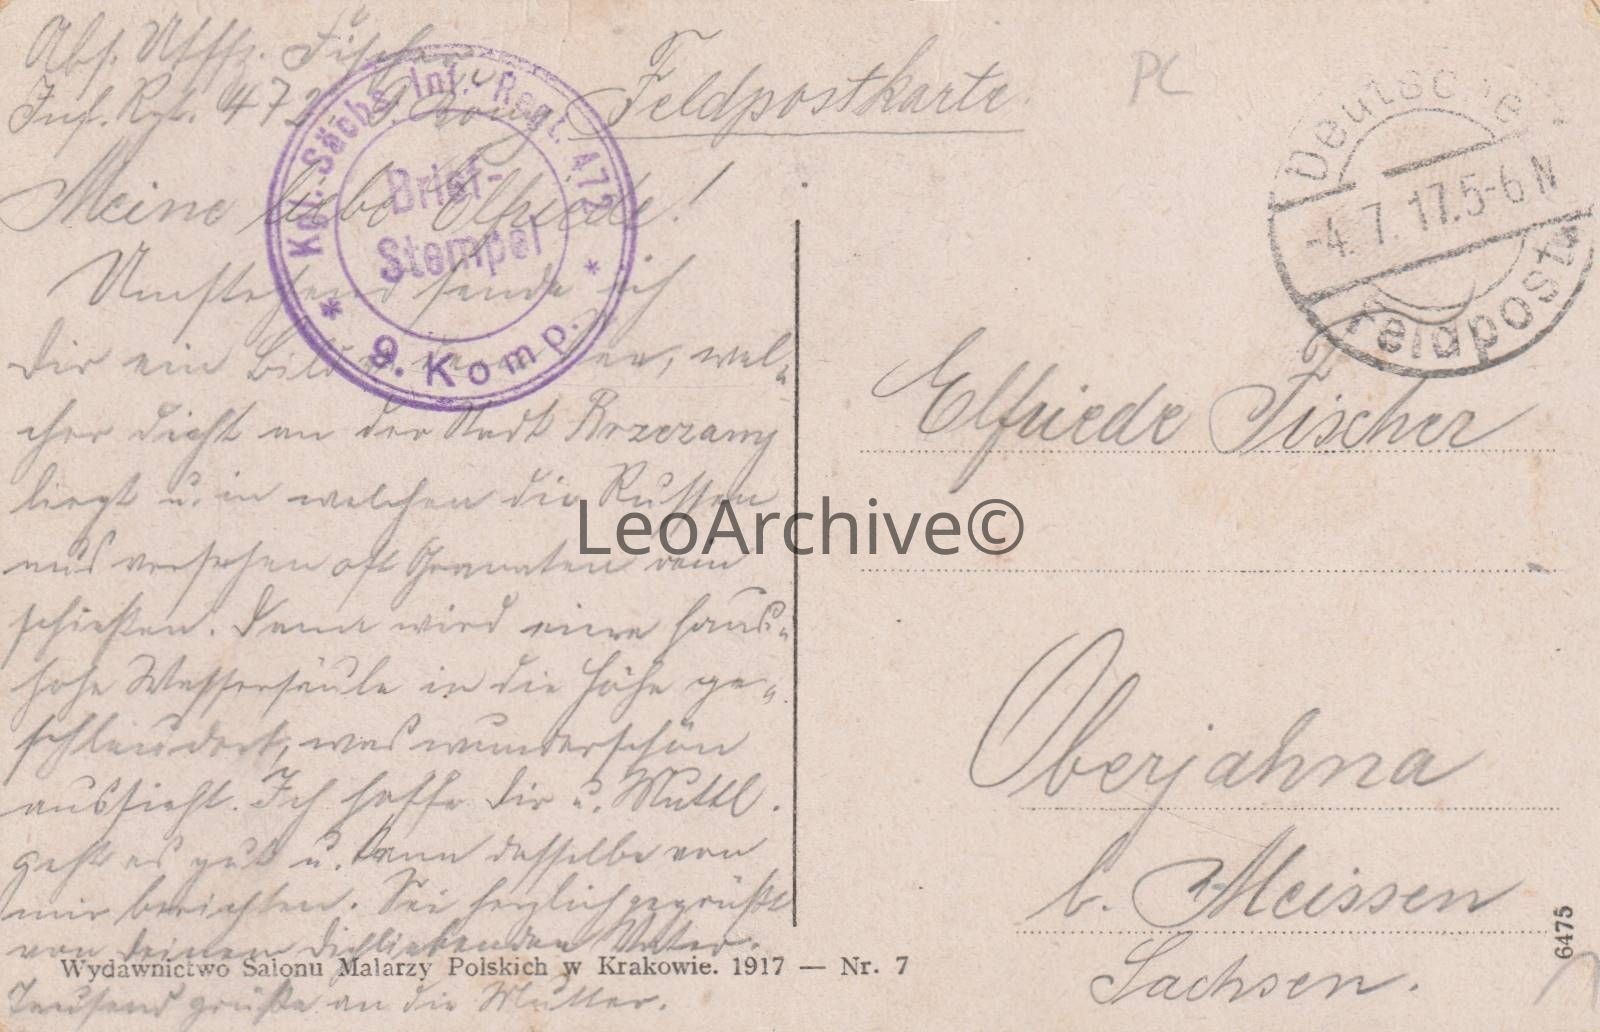 Abs. Uffz. Fischer
Inf. Rgt. 472 9. Komp.
Feldpostkarte.
PC
Kgl. Sächs. Inf.-Regt. 472
Brief-
Stempel
* 9. Komp. *
Deutsche
-4.7.17.5-6 N
Feldpost
Meine liebe Elfriede!
Umstehend sende ich
Dir ein Bild wel-
cher dicht an der Stadt Brzezany
liegt u. in welchen die Russen
aus versehen oft Granaten rein
schießen. Dann wird eine haus-
hohe Wassersäule in die Höhe ge-
schleudert, was wunderschön
aussieht. Ich hoffe Dir u. Muttl.
geht es gut u. kann dasselbe von
mir berichten. Sei herzlich gegrüßt
von deinem Dichliebenden Vater.
Tausend grüße an die Mutter.
Elfriede Fischer
Oberjahna
b. Meissen
Sachsen.
LeoArchive©
Wydawnictwo Salonu Malarzy Polskich w Krakowie. 1917 — Nr. 7
6475